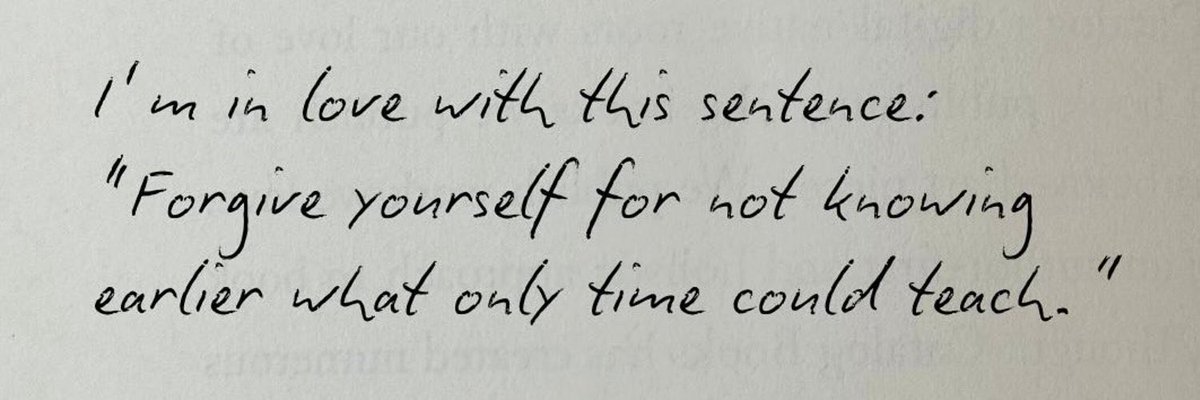 I'm in love with this sentence:
"Forgive yourself for not knowing
earlier what only time could teach."